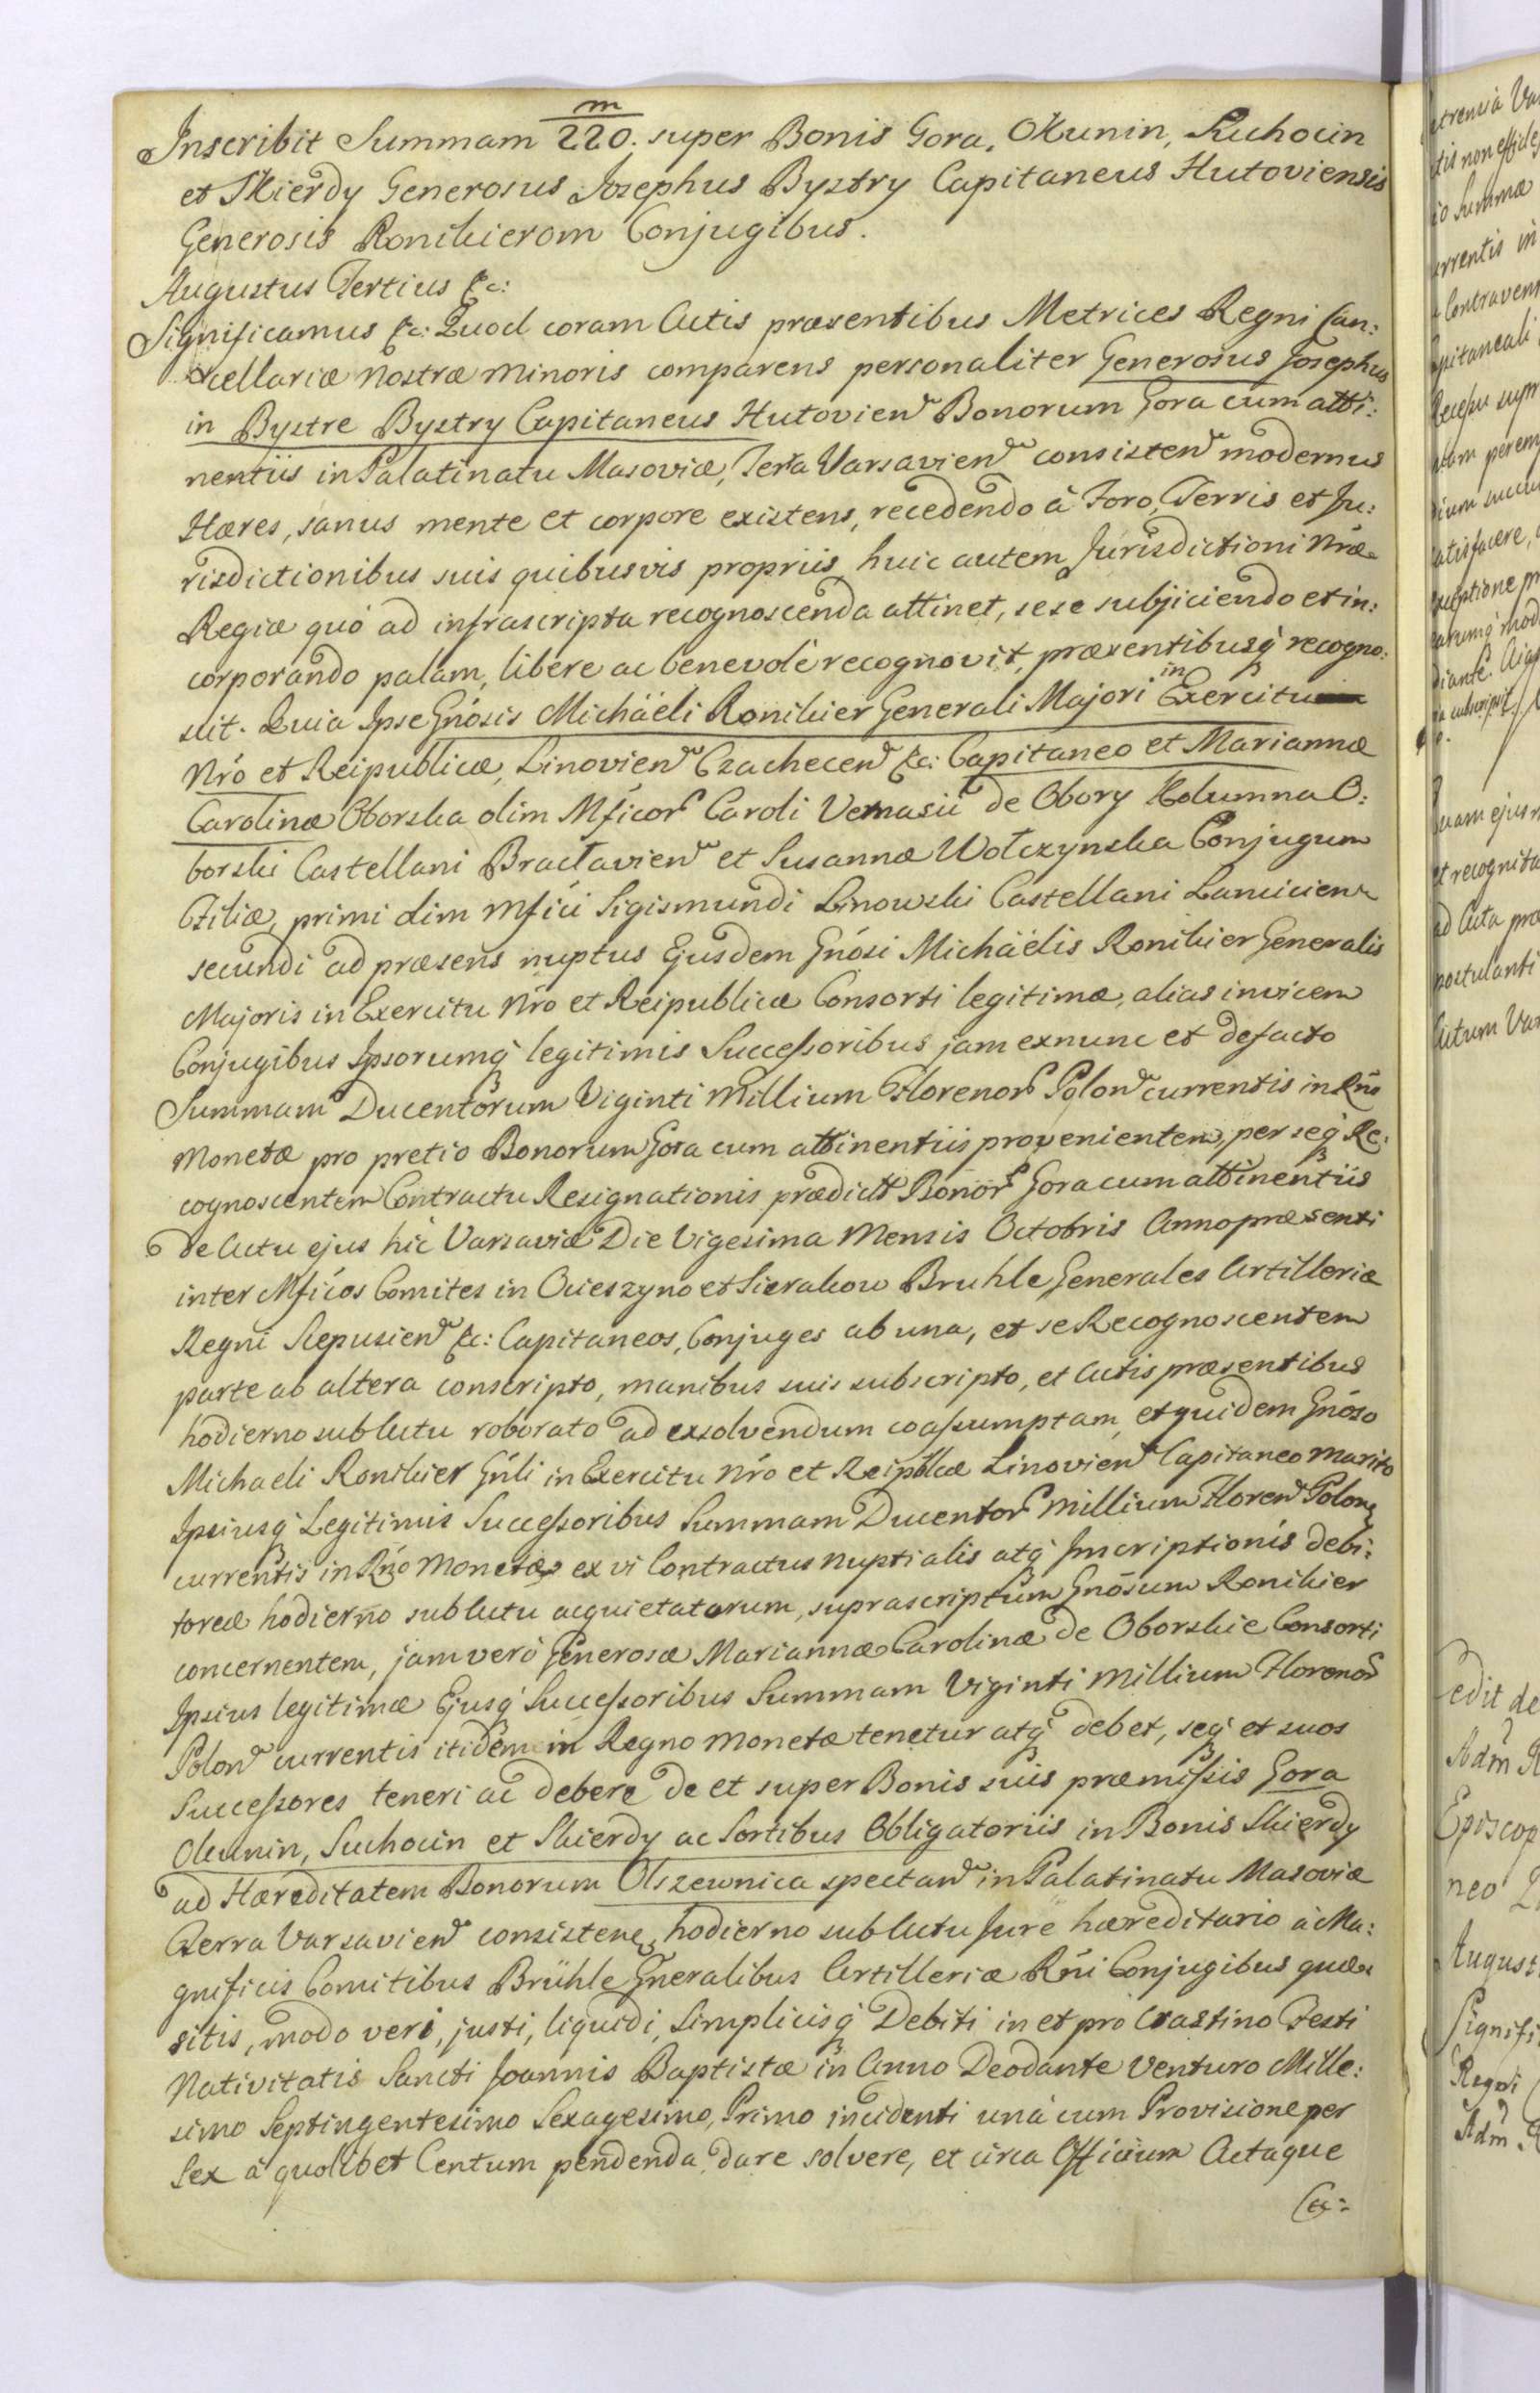 m
Inscribit Summam 220. super Bonis Gora, Okunin, Suchocin
et Skierdy Generosus Josephus Bystry Capitaneus Hutoviensis
Generosis Ronikierom Conjugibus.
Augustus Tertius &c:
Significamus &c: Quod coram Actis præsentibus Metrices Regni Can:
cellariæ nostræ minoris comparens personaliter Generosus Josephus
in Bystre Bystry Capitaneus Hutovien Bonorum Gora cum atti:
nentiis in Palatinatu Masoviæ, Terra Varsavien consisten modernus
Hæres, sanus mente et corpore existens, recedendo à Foro, Terris et Ju:
risdictionibus suis quibusvis propriis huic autem Jurisdictioni Nræ
Regiæ quò ad infrascripta recognoscenda attinet, sese subjiciendo et in:
corporando palam, libere ac benevolè recognovit, præsentibusq recogno:
scit. Quia Ipse Gnósis Michäeli Ronikier Generali Majori in Exercitu
Nró et Reipublicæ, Linovien Czachecen &c: Capitaneo et Mariannæ
Carolinæ Oborska olim Mficor Caroli Vernasii de Obory Kolumna O:
borski Castellani Bracłavien et Susannæ Wołczynska Conjugum
Filiæ, primi olim Mfici Sigismundi Linowski Castellani Lancicien
secundi ad præsens nuptus Ejusdem Gnósi Michäelis Ronikier Generalis
Majoris in Exercitu Nró et Reipublicæ Consorti legitimæ, alias invicem
Conjugibus Ipsorumq legitimis Successoribus jam exnunc et defacto
Summam Ducentorum Viginti Millium Florenor Polon currentis in Rno
Monetæ pro pretio Bonorum Gora cum attinentiis provenientem, per seq Re:
cognoscentem Contractu Resignationis prædictt Bonor Gora cum attinentiis
de Actu ejus hìc Varsaviæ Die Vigesima Mensis Octobris Anno præsenti
inter Mficos Comites in Ocieszyno et Sierakow Bruhle Generales Artilleriæ
Regni Scepusien &c: Capitaneos, Conjuges ab una, et se Recognoscentem
parte ab altera conscripto, manibus suis subscripto, et Actis præsentibus
hodierno sub Actu roborato ad exsolvendum coassumptam, et quidem Gnóso
Michaeli Ronikier Gnli in Exercitu Nró et Reipblcæ Linovien Capitaneo Marito
Ipsiusq Legitimis Successoribus Summam Ducentor Millium Floren Polon
currentis in Rno Monetæ ex vi Contractus nuptialis atq Inscriptionis debi:
toreæ hodierno sub Actu acquietatorum, suprascriptum Gnósum Ronikier
concernentem, jam verò Generosæ Mariannæ Carolinæ de Oborskie Consorti
Ipsius legitimæ Ejusq Successoribus Summam Viginti Millium Florenor
Polon currentis itidem in Regno Monetæ tenetur atq debet, seq et suos
Successores teneri ac debere de et super Bonis suis præmissis Gora
Okunin, Suchocin et Skierdy ac Sortibus Obligatoriis in Bonis Skierdy
ad Hæreditatem Bonorum Olszewnica spectan in Palatinatu Masoviæ
Terra Varsavien consisten, hodierno sub Actu Jure hæreditario à Ma:
gnificis Comitibus Brühle Gneralibus Artilleriæ Rni Conjugibus quæ
sitis, modo veri, justi, liquidi, Simplicisq Debiti in et pro Crastino Festi
Nativitatis Sancti Joannis Baptistæ in Anno Deodante Venturo Mille:
simo Septingentesimo Sexagesimo, Primo incidenti unà cum Provisione per
Sex à quolibet Centum pendenda dare solvere, et circa Officium Actaque